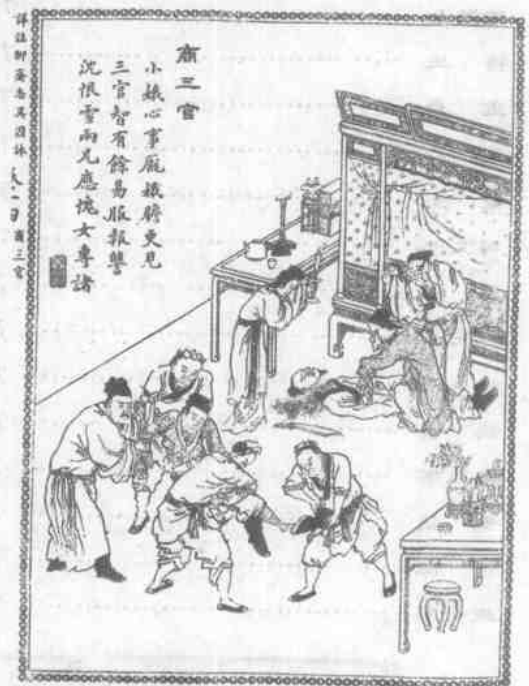 商三官
小娥心事龐娥膽更見
三官智有餘易服報讐
沈恨雪兩兄應愧女專諸
詳註聊齋志異圖詠
商三官